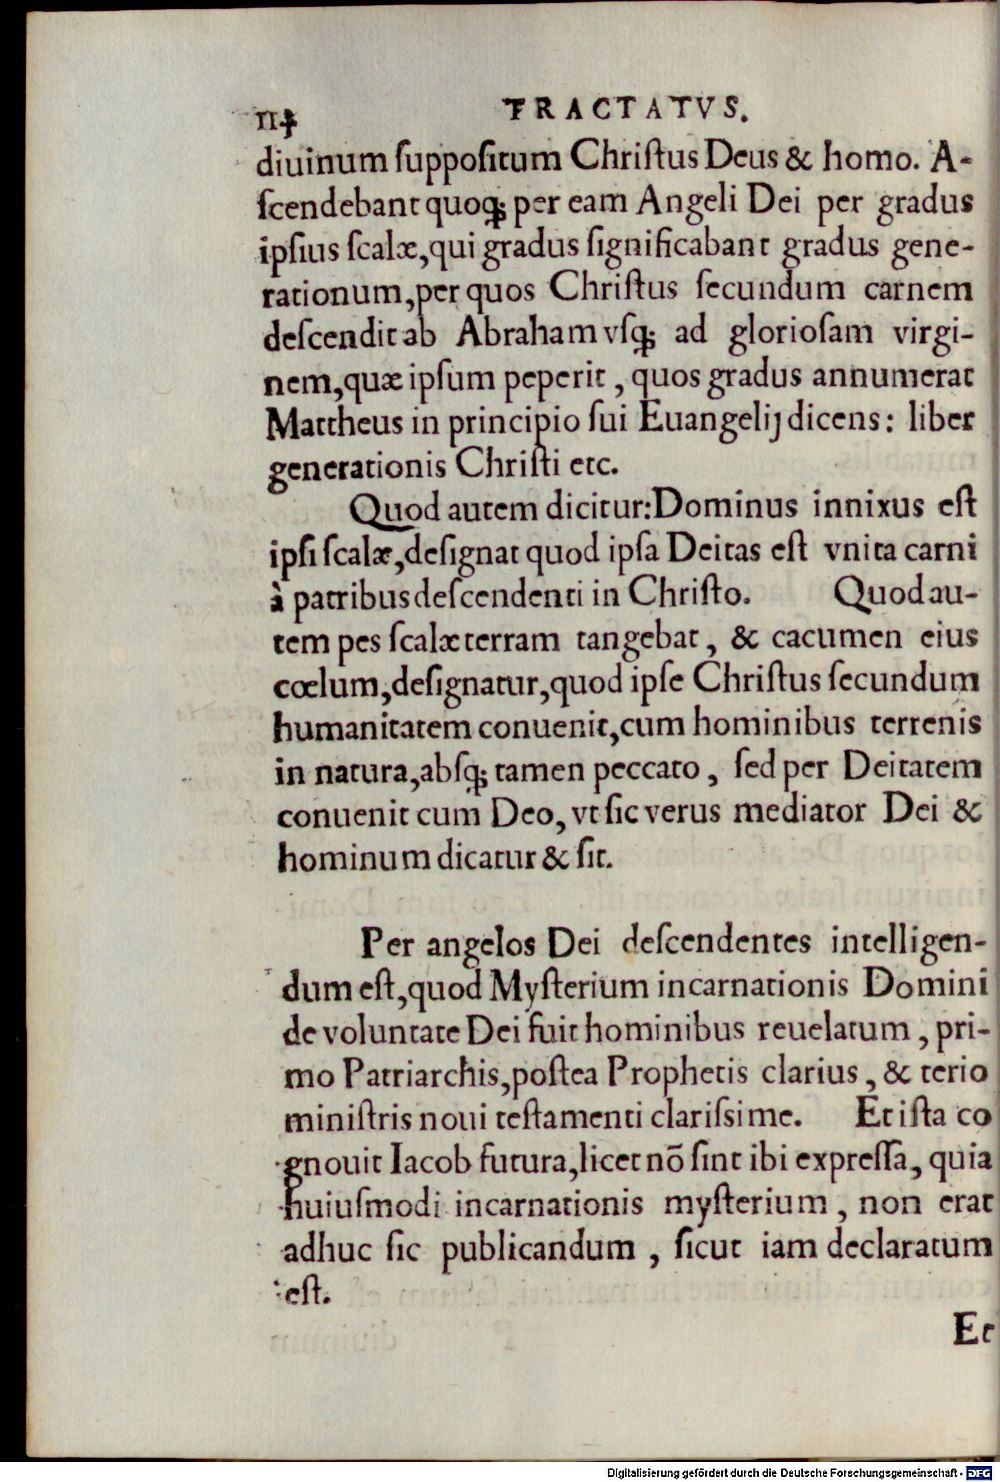 TRACTATVS.
diuinum ſuppoſitum Chriſtus Deus & homo. A-
ſcendebant quoq; per eam Angeli Dei per gradus
ipſius ſcalæ, qui gradus ſignificabant gradus gene-
rationum, per quos Chriſtus ſecundum carnem
deſcendit ab Abraham vſq; ad glorioſam virgi-
nem, quæ ipſum peperit, quos gradus annumerat
Mattheus in principio ſui Euangelij dicens: liber
generationis Chriſti etc.
Quod autem dicitur: Dominus innixus eſt
ipſi ſcalæ, deſignat quod ipſa Deitas eſt vnita carni
à patribus deſcendenti in Chriſto. Quod au-
tem pes ſcalæ terram tangebat, & cacumen eius
cœlum, deſignatur, quod ipſe Chriſtus ſecundum
humanitatem conuenit, cum hominibus terrenis
in natura, abſq; tamen peccato, ſed per Deitatem
conuenit cum Deo, vt ſic verus mediator Dei &
hominum dicatur & ſit.
Per angelos Dei deſcendentes intelligen-
dum eſt, quod Myſterium incarnationis Domini
de voluntate Dei fuit hominibus reuelatum, pri-
mo Patriarchis, poſtea Prophetis clarius, & terio
miniſtris noui teſtamenti clariſsime. Et iſta co
gnouit Iacob futura, licet nõ ſint ibi expreſſa, quia
huiuſmodi incarnationis myſterium, non erat
adhuc ſic publicandum, ſicut iam declaratum
eſt.
Et
Digitalisierung gefördert durch die Deutsche Forschungsgemeinschaft - DFG